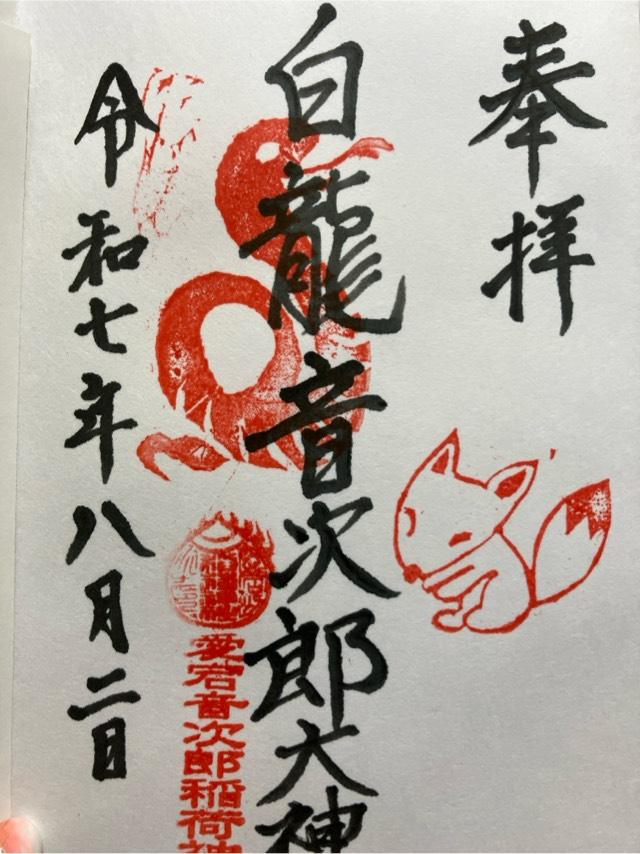 奉拝
白龍音次郎大神
愛宕音次郎稲荷神
令和七年八月二日